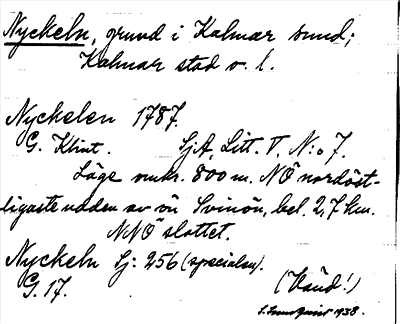 Nyckeln, grund i Kalmar sund;
Kalmar stad o. l.
Nyckelen 1787.
G. Klint. SjA, Litt. V, N:o 7.
Läge omkr. 800 m. NÖ nordöst-
ligaste udden av ön Svinön, bel. 2,7 km.
NNÖ slottet.
Nyckeln Sj: 256 (specialen).
G. 17. (Käud!)
1938.